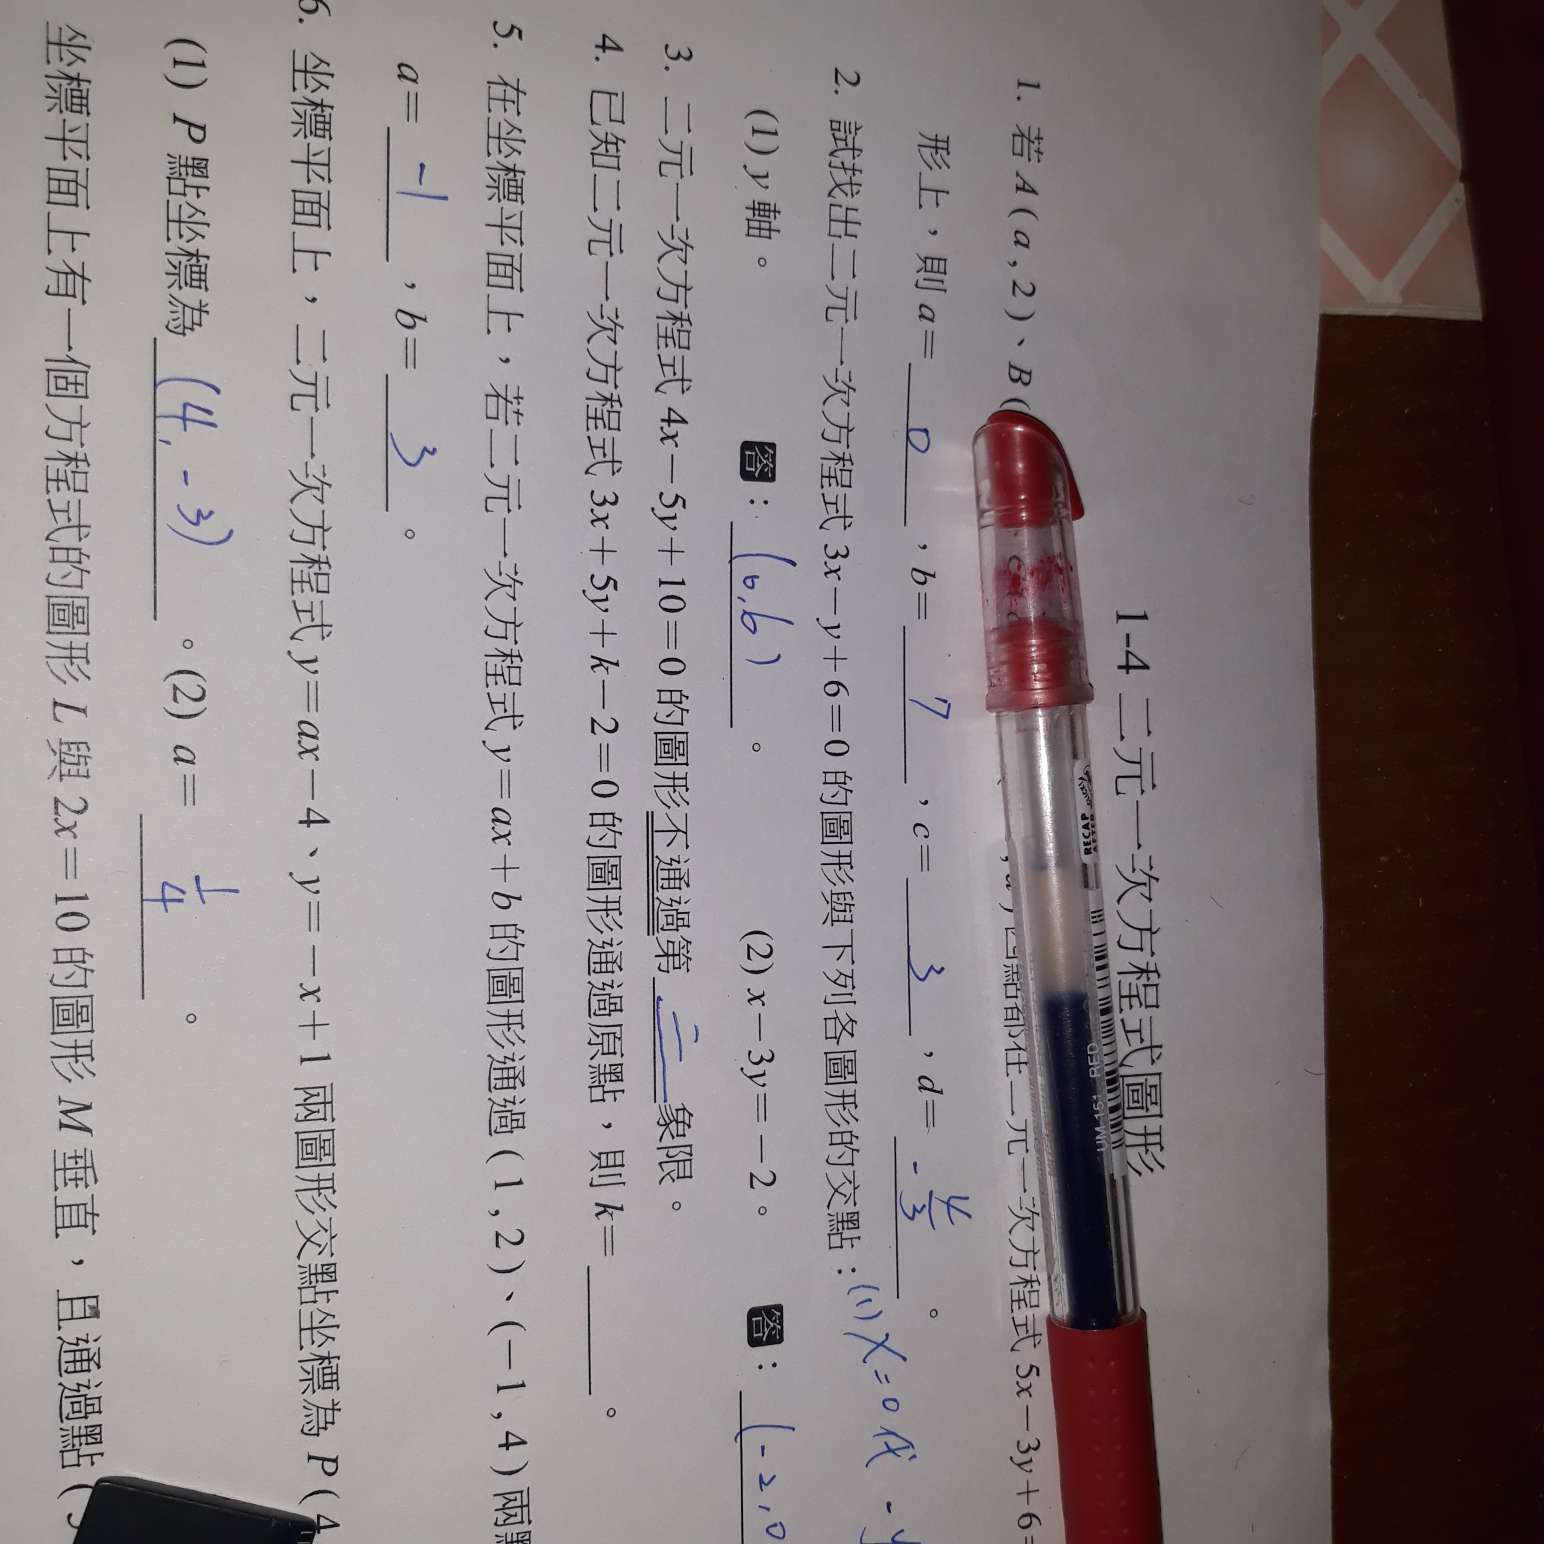 1-4 二元一次方程式圖形
1. 若 A ( a , 2 )、B ( 四點都在二元一次方程式 5x－3y＋6＝
形上，則 a＝ 0 ，b＝ 7 ，c＝ 3 ，d＝ -4/3 。
2. 試找出二元一次方程式 3x－y＋6＝0 的圖形與下列各圖形的交點：(1) x=0 代
(1) y 軸。 (2) x－3y＝－2。
答：(0,6) 。 答：(-2,0
3. 二元一次方程式 4x－5y＋10＝0 的圖形不通過第 二 象限。
4. 已知二元一次方程式 3x＋5y＋k－2＝0 的圖形通過原點，則 k＝ 。
5. 在坐標平面上，若二元一次方程式 y＝ax＋b 的圖形通過 ( 1 , 2 )、(－1 , 4 ) 兩
a＝ -1 ，b＝ 3 。
6. 坐標平面上，二元一次方程式 y＝ax－4、y＝－x＋1 兩圖形交點坐標為 P ( 4
(1) P 點坐標為 (4,-3) 。(2) a＝ 1/4 。
坐標平面上有一個方程式的圖形 L 與 2x＝10 的圖形 M 垂直，且通過點 (
RECAP